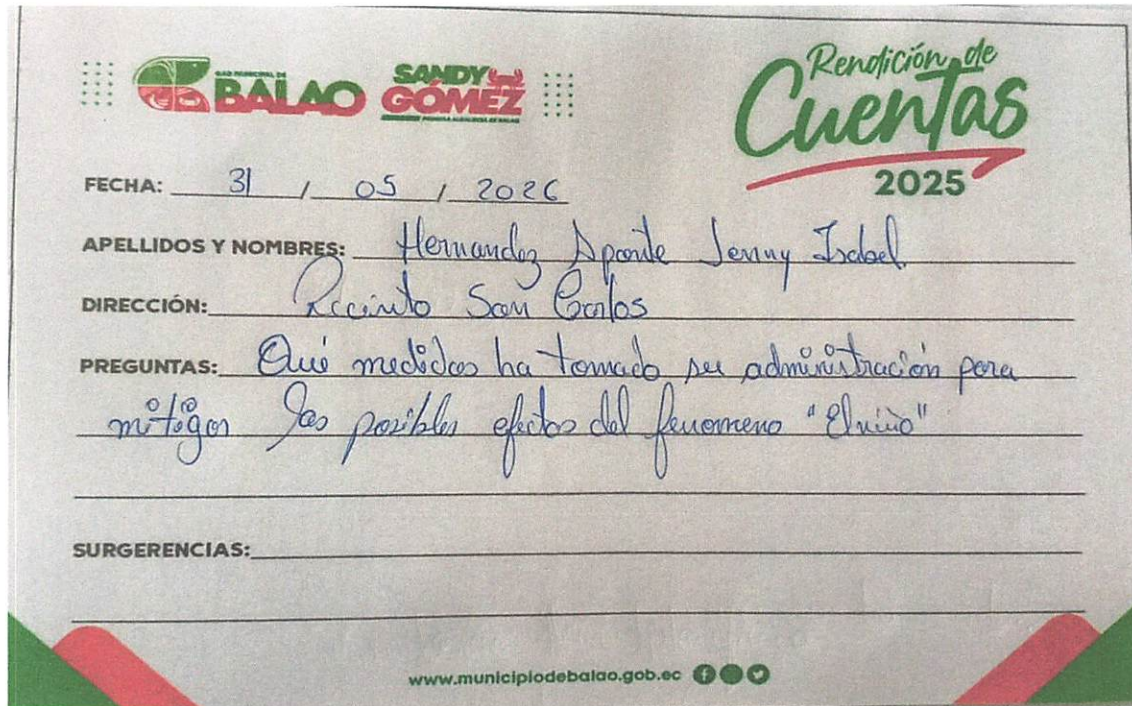 GAD MUNICIPAL DE
BALAO
SANDY
GÓMEZ
PRIMERA ALCALDESA DE BALAO
Rendición de
Cuentas
2025
FECHA: 31 / 05 / 2026
APELLIDOS Y NOMBRES: Hernandez Aponte Jenny Isabel.
DIRECCIÓN: Recinto San Carlos
PREGUNTAS: Qué medidas ha tomado su administración para
mitigar los posibles efectos del fenomeno "El niño"
SURGERENCIAS:
www.municipiodebalao.gob.ec